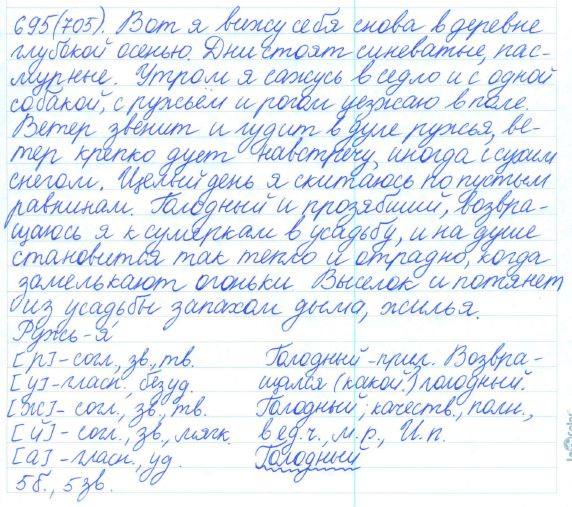 695(705). Вот я вижу себя снова в деревне
глубокой осенью. Дни стоят синеватые, пас-
мурные. Утром я сажусь в седло и с одной
собакой, с ружьём и рогом уезжаю в поле.
Ветер звенит и гудит в дуле ружья, ве-
тер крепко дует навстречу, иногда с сухим
снегом. Целый день я скитаюсь по пустым
равнинам. Голодный и прозябший, возвра-
щаюсь я к сумеркам в усадьбу, и на душе
становится так тепло и отрадно, когда
замелькают огоньки Выселок и потянет
из усадьбы запахом дыма, жилья.
Ружь-я
[р]-согл., зв., тв. Голодный-прил. Возвра-
[у]-гласн., безуд. щался (какой?) голодный.
[ж]-согл., зв., тв. Голодный; качеств., полн.,
[й]-согл., зв., мягк. в ед.ч., м.р., И.п.
[а]-гласн., уд. Голодный
5б., 5зв.